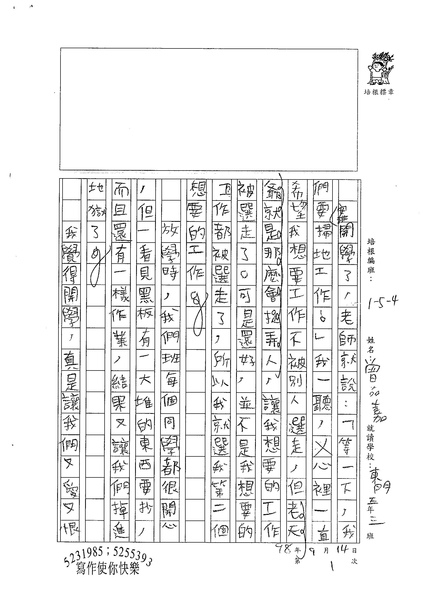 培根標章
培根編班：1-5-4 姓名 曾品嘉 就讀學校：東門 五年二班
98年9月14日
第1次
開學了，老師就說：「等一下，我
們要掃地工作。」我一聽，心裡一直
希望我想要工作不被別人選走，但老天
爺就是那麼會捉弄人，讓我想要的工作
被選走了。可是還好，並不是我想要的
工作都被選走了，所以我就選我第二個
想要的工作。
放學時，我們班每個同學都很開心
，但一看見黑板有一大堆的東西要抄，
而且還有一樣作業，結果又讓我們掉進
地獄了。
我覺得開學，真是讓我們又愛又恨
5231985；5255393
寫作使你快樂